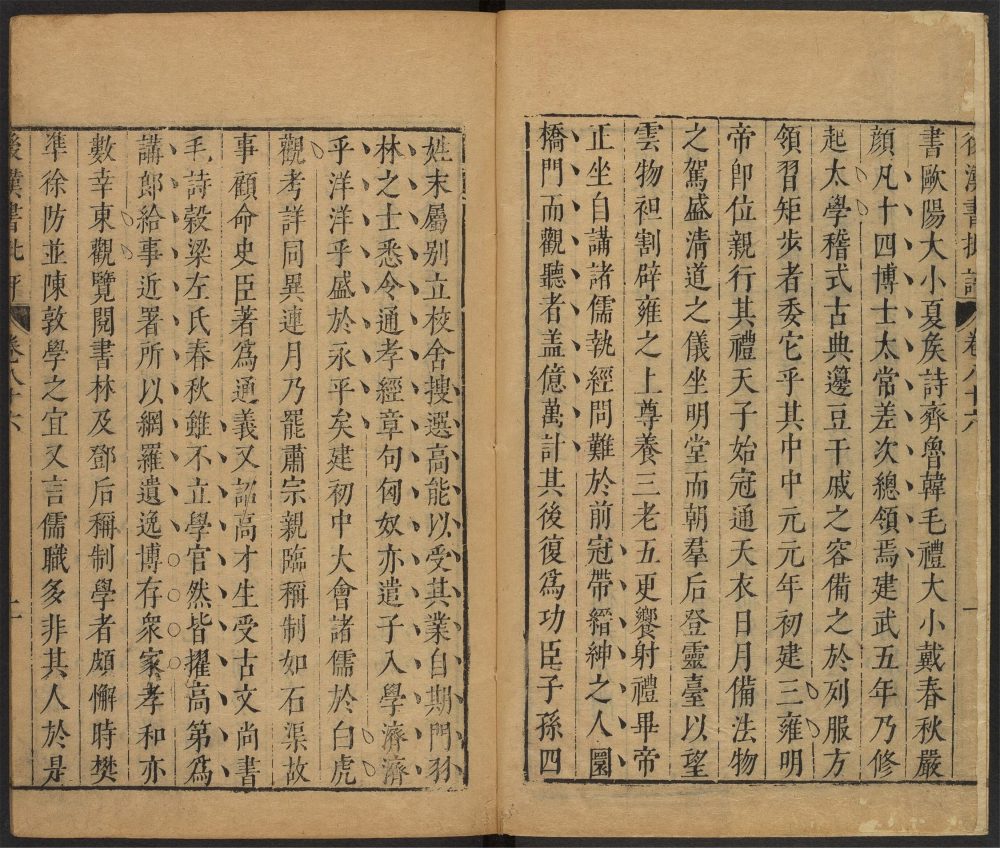 後漢書批評 卷八十六 一
書歐陽大小夏矦詩齊魯韓毛禮大小戴春秋嚴
顏凡十四博士太常差次總領焉建武五年乃修
起太學稽式古典籩豆干戚之容備之於列服方
領習矩步者委它乎其中中元元年初建三雍明
帝卽位親行其禮天子始冠通天衣日月備法物
之駕盛清道之儀坐明堂而朝羣后登靈臺以望
雲物袒割辟雍之上尊養三老五更饗射禮畢帝
正坐自講諸儒執經問難於前冠帶縉紳之人圜
橋門而觀聽者盖億萬計其後復爲功臣子孫四
姓末屬別立校舍搜選高能以受其業自期門羽
林之士悉令通孝經章句匈奴亦遣子入學濟濟
乎洋洋乎盛於永平矣建初中大會諸儒於白虎
觀考詳同異連月乃罷肅宗親臨稱制如石渠故
事顧命史臣著爲通義又詔高才生受古文尚書
毛詩穀梁左氏春秋雖不立學官然皆擢高第爲
講郎給事近署所以網羅遺逸博存衆家孝和亦
數幸東觀覽閱書林及鄧后稱制學者頗懈時樊
準徐防並陳敦學之宜又言儒職多非其人於是
後漢書批評 卷八十六